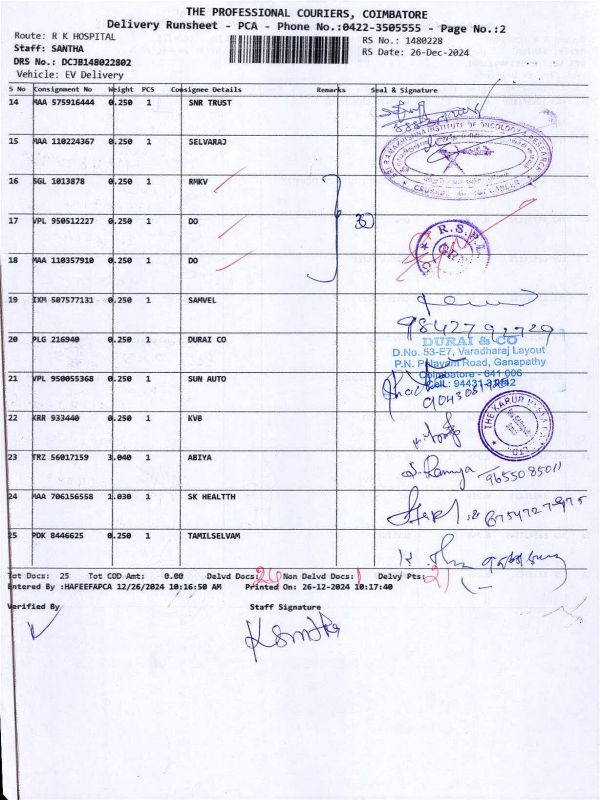 THE PROFESSIONAL COURIERS, COIMBATORE
Delivery Runsheet - PCA - Phone No.:0422-3505555 - Page No.:2
Route: R K HOSPITAL
RS No.: 1480228
Staff: SANTHA
RS Date: 26-Dec-2024
DRS No.: DCJB148022802
Vehicle: EV Delivery
S No Consignment No Weight PCS Consignee Details Remarks Seal & Signature
14 MAA 575916444 0.250 1 SNR TRUST
15 MAA 110224367 0.250 1 SELVARAJ
16 SGL 1013878 0.250 1 RMKV
17 VPL 950512227 0.250 1 DO
18 MAA 110357910 0.250 1 DO
R.S.P.L
19 IXM 507577131 0.250 1 SAMVEL
20 PLG 216940 0.250 1 DURAI CO
DURAI & CO
D.No. 53-E7, Varadharaj Layout
P.N. Palayam Road, Ganapathy
Coimbatore - 641 006
21 VPL 950055368 0.250 1 SUN AUTO
22 KRR 933440 0.250 1 KVB
23 TRZ 56017159 3.040 1 ABIYA
S. Ramya 9655085011
24 MAA 706156558 1.030 1 SK HEALTTH
25 PDK 8446625 0.250 1 TAMILSELVAM
Tot Docs: 25 Tot COD Amt: 0.00 Delvd Docs: 24 Non Delvd Docs: 1 Delvy Pts: 21
Entered By :HAFEEFAPCA 12/26/2024 10:16:50 AM Printed On: 26-12-2024 10:17:40
Verified By Staff Signature